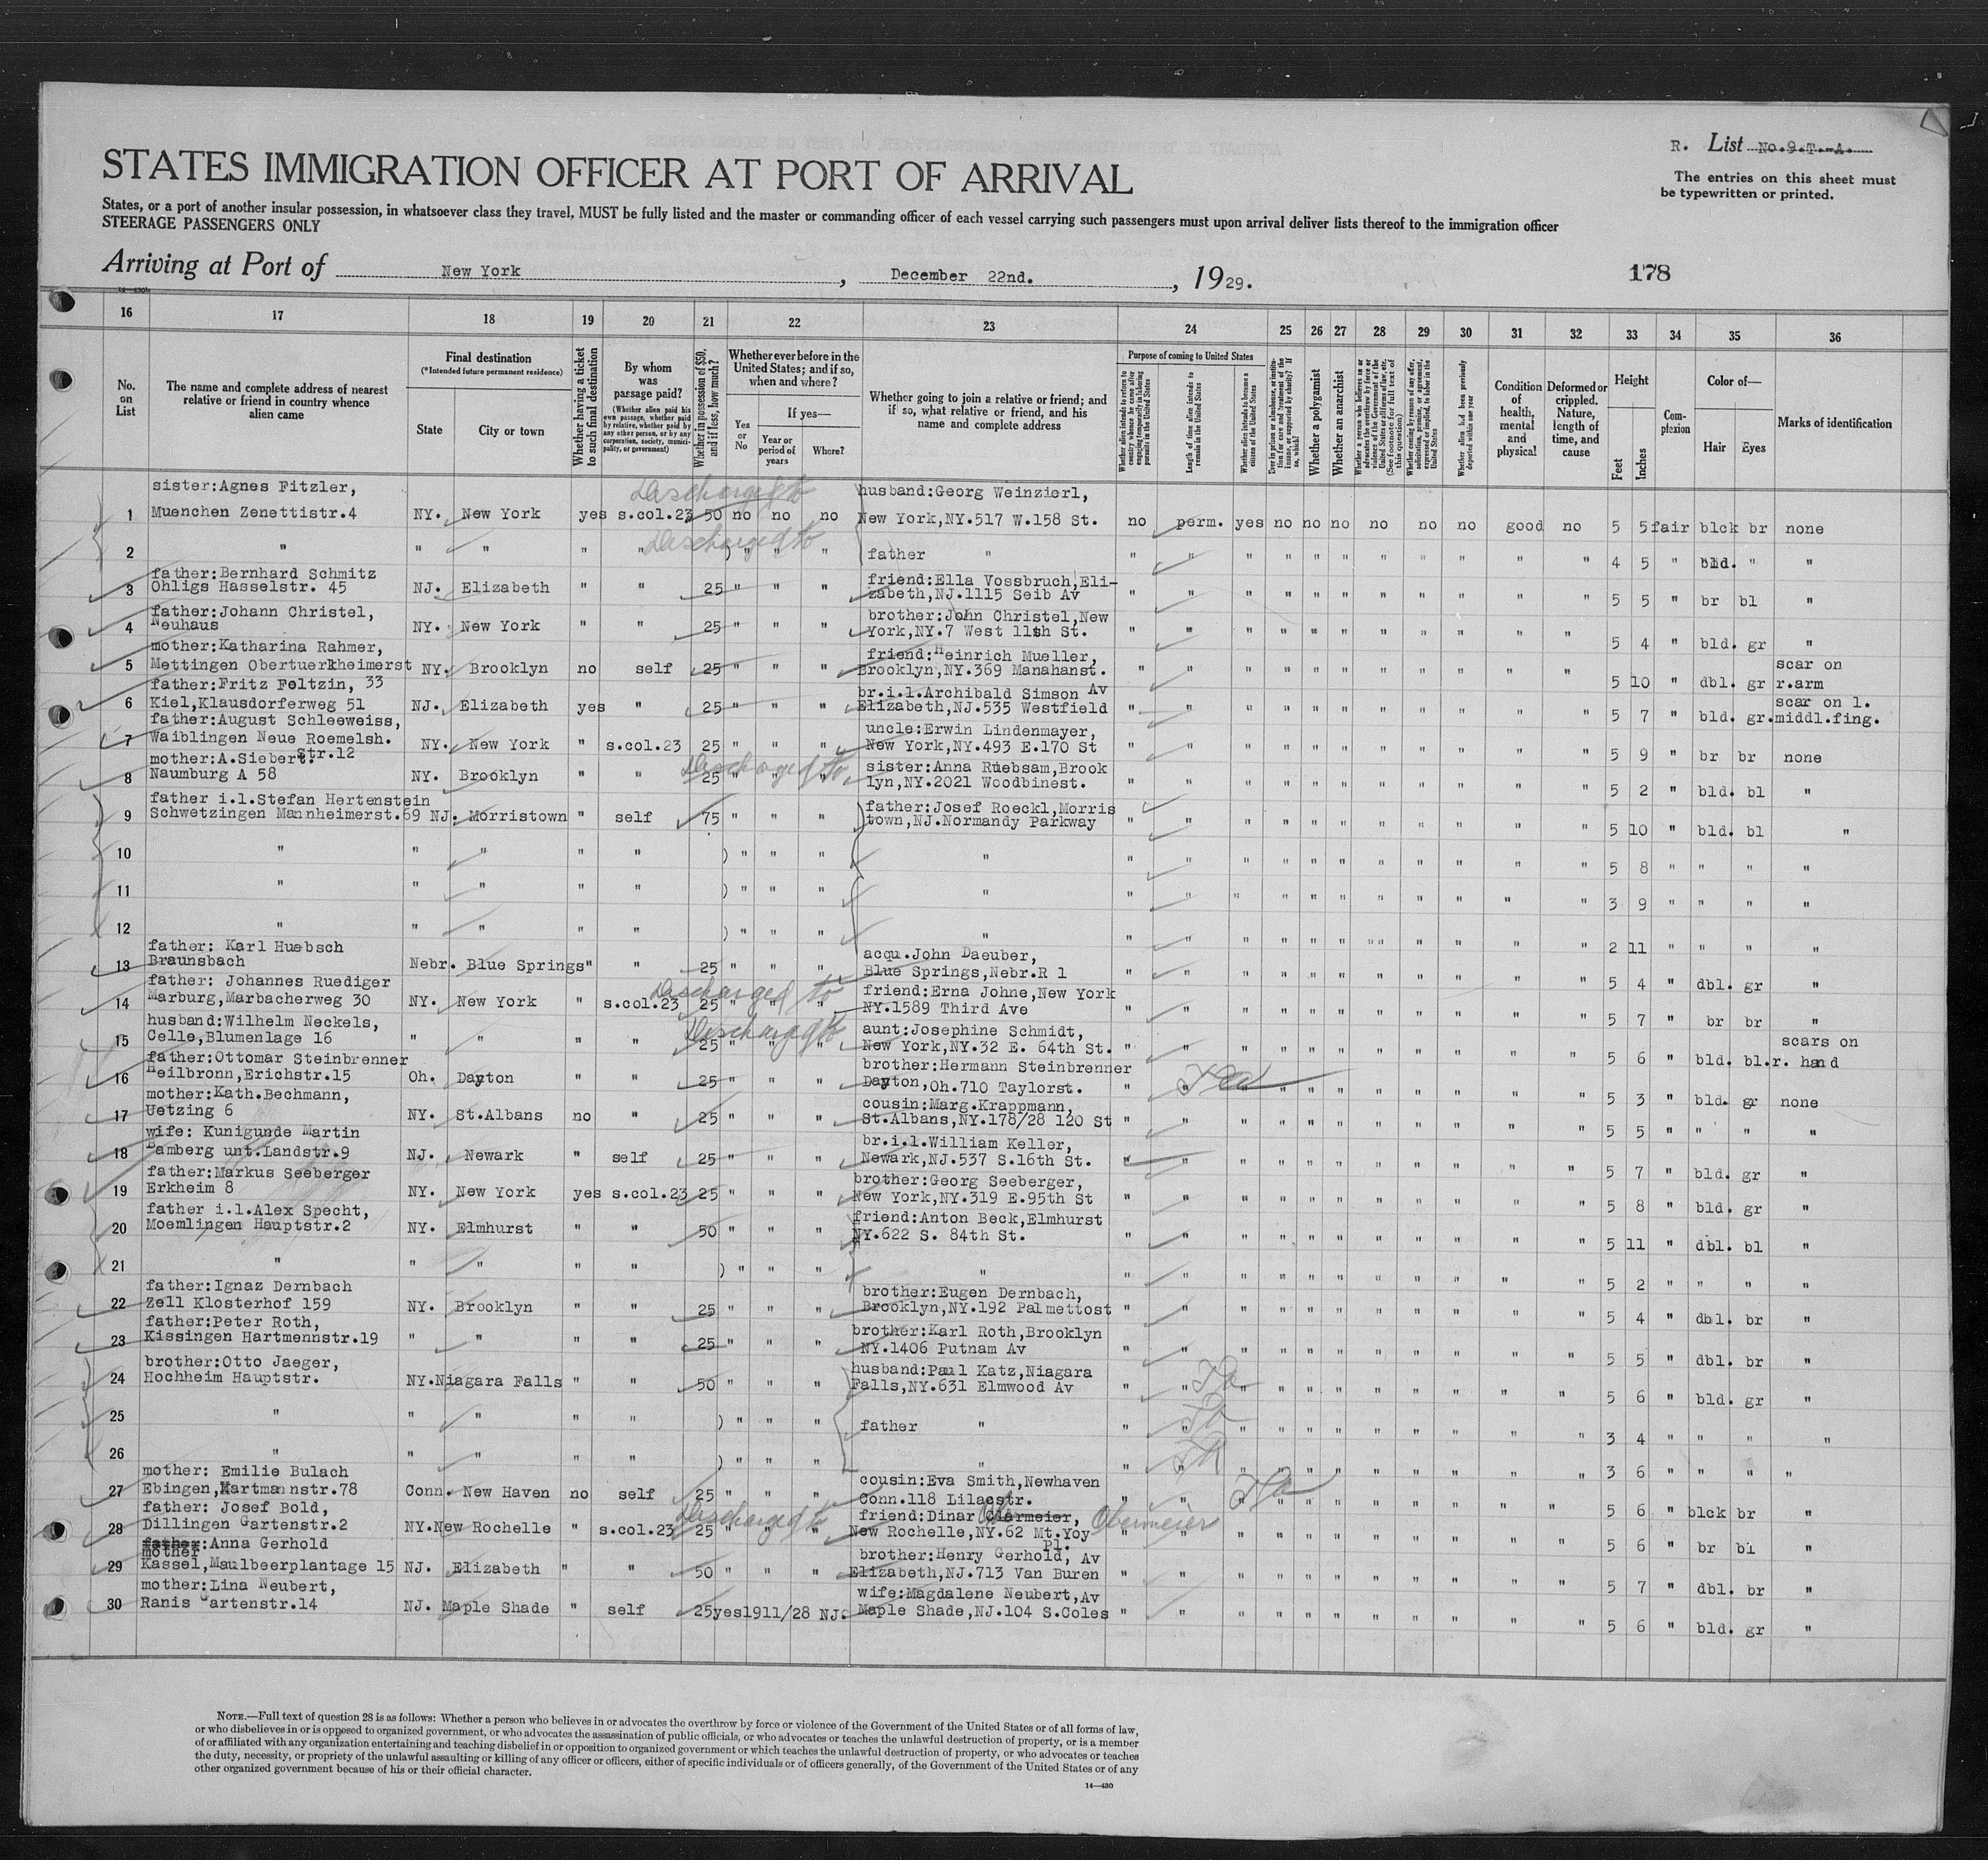 R. List No.9.T.-A.
The entries on this sheet must
be typewritten or printed.
STATES IMMIGRATION OFFICER AT PORT OF ARRIVAL
States, or a port of another insular possession, in whatsoever class they travel, MUST be fully listed and the master or commanding officer of each vessel carrying such passengers must upon arrival deliver lists thereof to the immigration officer
STEERAGE PASSENGERS ONLY
Arriving at Port of New York, December 22nd., 1929.
178
16 17 18 19 20 21 22 23 24 25 26 27 28 29 30 31 32 33 34 35 36
No. on List
The name and complete address of nearest relative or friend in country whence alien came
Final destination
(*Intended future permanent residence)
State
City or town
Whether having a ticket to such final destination
By whom was passage paid?
(Whether alien paid his own passage, whether paid by relative, whether paid by any other person, or by any corporation, society, municipality, or government)
Whether in possession of $50, and if less, how much?
Whether ever before in the United States; and if so, when and where?
Yes or No
If yes—
Year or period of years
Where?
Whether going to join a relative or friend; and if so, what relative or friend, and his name and complete address
Purpose of coming to United States
Whether alien intends to return to country whence he came after engaging temporarily in laboring pursuits in the United States
Length of time alien intends to remain in the United States
Whether alien intends to become a citizen of the United States
Ever in prison or almshouse, or institution for care and treatment of the insane, or supported by charity? If so, which?
Whether a polygamist
Whether an anarchist
Whether coming by reason of any offer, solicitation, promise, or agreement, expressed or implied, to labor in the United States
Whether alien had been previously deported within one year
Condition of health, mental and physical
Deformed or crippled. Nature, length of time, and cause
Height
Feet
Inches
Complexion
Color of—
Hair
Eyes
Marks of identification
sister:Agnes Fitzler, Discharged to husband:Georg Weinzierl,
1 Muenchen Zenettistr.4 NY. New York yes s.col.23 50 no no no New York,NY.517 W.158 St. no perm. yes no no no no no no good no 5 5 fair blck br none
2 " " " " " Discharged to ) " " " father " " " " " " " " " " " " 4 5 " bld. " "
father:Bernhard Schmitz friend:Ella Vossbruch,Eli-
3 Ohligs Hasselstr. 45 NJ. Elizabeth " " 25 " " " zabeth,NJ.1115 Seib Av " " " " " " " " " " " 5 5 " br bl "
father:Johann Christel, brother:John Christel,New
4 Neuhaus NY. New York " " 25 " " " York,NY.7 West 11th St. " " " " " " " " " " " 5 4 " bld. gr "
mother:Katharina Rahmer, friend:Heinrich Mueller, scar on
5 Mettingen Obertuerkheimerst NY. Brooklyn no self 25 " " " Brooklyn,NY.369 Manahanst. " " " " " " " " " " " 5 10 " dbl. gr r.arm
father:Fritz Feltzin, 33 br.i.l.Archibald Simson Av scar on l.
6 Kiel,Klausdorferweg 51 NJ. Elizabeth yes " 25 " " " Elizabeth,NJ.535 Westfield " " " " " " " " " " " 5 7 " bld. gr. middl.fing.
father:August Schleeweiss, uncle:Erwin Lindenmayer,
7 Waiblingen Neue Roemelsh. NY. New York " s.col.23 25 " " " New York,NY.493 E.170 St " " " " " " " " " " " 5 9 " br br none
mother:A.Siebert. Str.12 Discharged to sister:Anna Ruebsam,Brook
8 Naumburg A 58 NY. Brooklyn " " 25 " " " lyn,NY.2021 Woodbinest. " " " " " " " " " " " 5 2 " bld. bl "
father i.l.Stefan Hertenstein father:Josef Roeckl,Morris
9 Schwetzingen Mannheimerst.69 NJ. Morristown " self 75 " " " town,NJ.Normandy Parkway " " " " " " " " " " " 5 10 " bld. bl "
10 " " " " " ) " " " " " " " " " " " " " " " 5 8 " " " "
11 " " " " " ) " " " " " " " " " " " " " " " 3 9 " " " "
12 " " " " " ) " " " " " " " " " " " " " " " 2 11 " " " "
father: Karl Huebsch acqu.John Daeuber,
13 Braunsbach Nebr. Blue Springs " " 25 " " " Blue Springs,Nebr.R 1 " " " " " " " " " " " 5 4 " dbl. gr "
father: Johannes Ruediger Discharged to friend:Erna Johne,New York
14 Marburg,Marbacherweg 30 NY. New York " s.col.23 25 " " " NY.1589 Third Ave " " " " " " " " " " " 5 7 " br br "
husband:Wilhelm Neckels, Discharged to aunt:Josephine Schmidt, scars on
15 Celle,Blumenlage 16 " " " " 25 " " " New York,NY.32 E. 64th St. " " " " " " " " " " " 5 6 " bld. bl. r. hand
father:Ottomar Steinbrenner brother:Hermann Steinbrenner
16 Heilbronn,Erichstr.15 Oh. Dayton " " 25 " " " Dayton,Oh.710 Taylorst. " " " " " " " " " " " 5 3 " bld. gr none
mother:Kath.Bechmann, cousin:Marg.Krappmann,
17 Uetzing 6 NY. St.Albans no " 25 " " " St.Albans,NY.178/28 120 St " " " " " " " " " " " 5 5 " " " "
wife: Kunigunde Martin br.i.l.William Keller,
18 Bamberg unt.Landstr.9 NJ. Newark " self 25 " " " Newark,NJ.537 S.16th St. " " " " " " " " " " " 5 7 " bld. gr "
father:Markus Seeberger brother:Georg Seeberger,
19 Erkheim 8 NY. New York yes s.col.23 25 " " " New York,NY.319 E.95th St " " " " " " " " " " " 5 8 " bld. gr "
father i.l.Alex Specht, friend:Anton Beck,Elmhurst
20 Moemlingen Hauptstr.2 NY. Elmhurst " " 50 " " " NY.622 S. 84th St. " " " " " " " " " " " 5 11 " dbl. bl "
21 " " " " " ) " " " " " " " " " " " " " " " 5 2 " " " "
father:Ignaz Dernbach brother:Eugen Dernbach,
22 Zell Klosterhof 159 NY. Brooklyn " " 25 " " " Brooklyn,NY.192 Palmettost " " " " " " " " " " " 5 4 " dbl. br "
father:Peter Roth, brother:Karl Roth,Brooklyn
23 Kissingen Hartmennstr.19 " " " " 25 " " " NY.1406 Putnam Av " " " " " " " " " " " 5 5 " dbl. br "
brother:Otto Jaeger, husband:Paul Katz,Niagara
24 Hochheim Hauptstr. NY. Niagara Falls " " 50 " " " Falls,NY.631 Elmwood Av " " " " " " " " " " " 5 6 " bld. gr "
25 " " " " " ) " " " father " " " " " " " " " " " " 3 4 " " " "
26 " " " " " ) " " " " " " " " " " " " " " " 3 6 " " " "
mother: Emilie Bulach cousin:Eva Smith,Newhaven
27 Ebingen,Hartmannstr.78 Conn. New Haven no self 25 " " " Conn.118 Lilacstr. " " " " " " " " " " " 5 6 " blck br "
father: Josef Bold, Discharged to friend:Dinar Obermeier
28 Dillingen Gartenstr.2 NY. New Rochelle " s.col.23 25 " " " New Rochelle,NY.62 Mt.Yoy Pl. " " " " " " " " " " " 5 6 " br bl "
father:Anna Gerhold brother:Henry Gerhold, Av
mother
29 Kassel,Maulbeerplantage 15 NJ. Elizabeth " " 50 " " " Elizabeth,NJ.713 Van Buren " " " " " " " " " " " 5 7 " dbl. br "
mother:Lina Neubert, wife:Magdalene Neubert,Av
30 Ranis Gartenstr.14 NJ. Maple Shade " self 25 yes 1911/28 NJ. Maple Shade,NJ.104 S.Coles " " " " " " " " " " " 5 6 " bld. gr "
NOTE.—Full text of question 28 is as follows: Whether a person who believes in or advocates the overthrow by force or violence of the Government of the United States or of all forms of law,
or who disbelieves in or is opposed to organized government, or who advocates the assassination of public officials, or who advocates or teaches the unlawful destruction of property, or is a member
of or affiliated with any organization entertaining and teaching disbelief in or opposition to organized government or which teaches the unlawful destruction of property, or who advocates or teaches
the duty, necessity, or propriety of the unlawful assaulting or killing of any officer or officers, either of specific individuals or of officers generally, of the Government of the United States or of any
other organized government because of his or their official character.
14—430